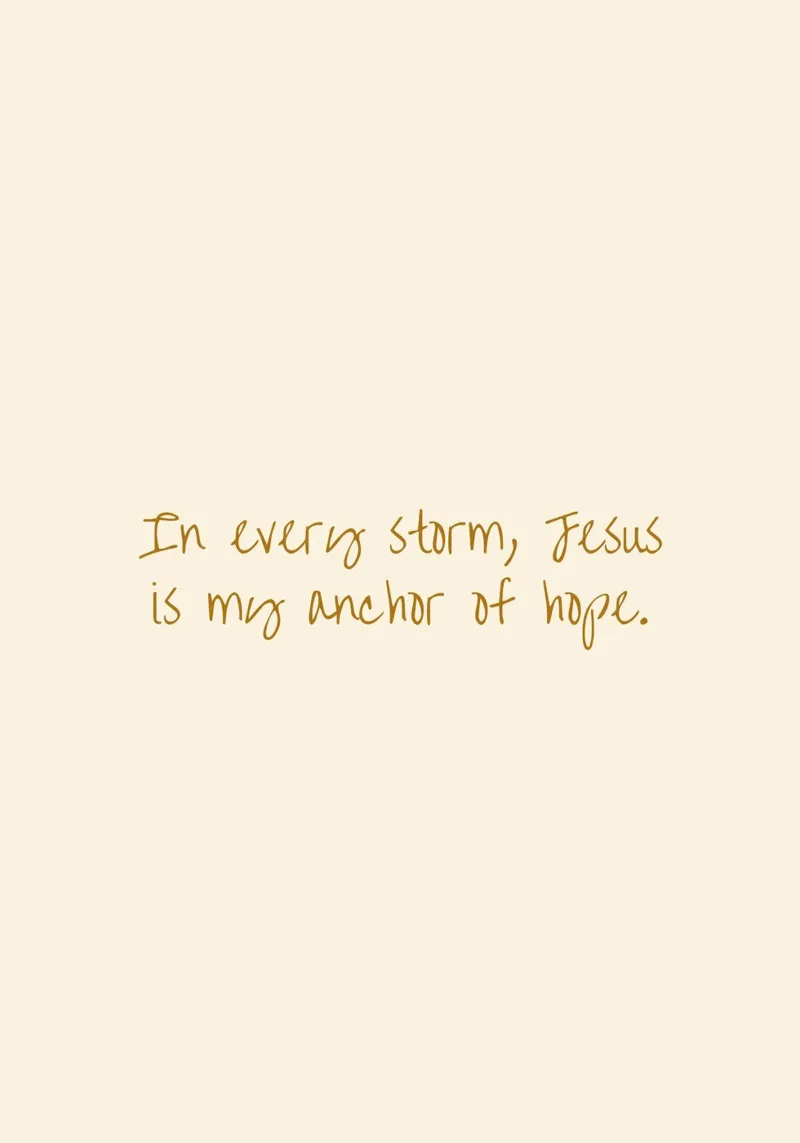 In every storm, Jesus
is my anchor of hope.